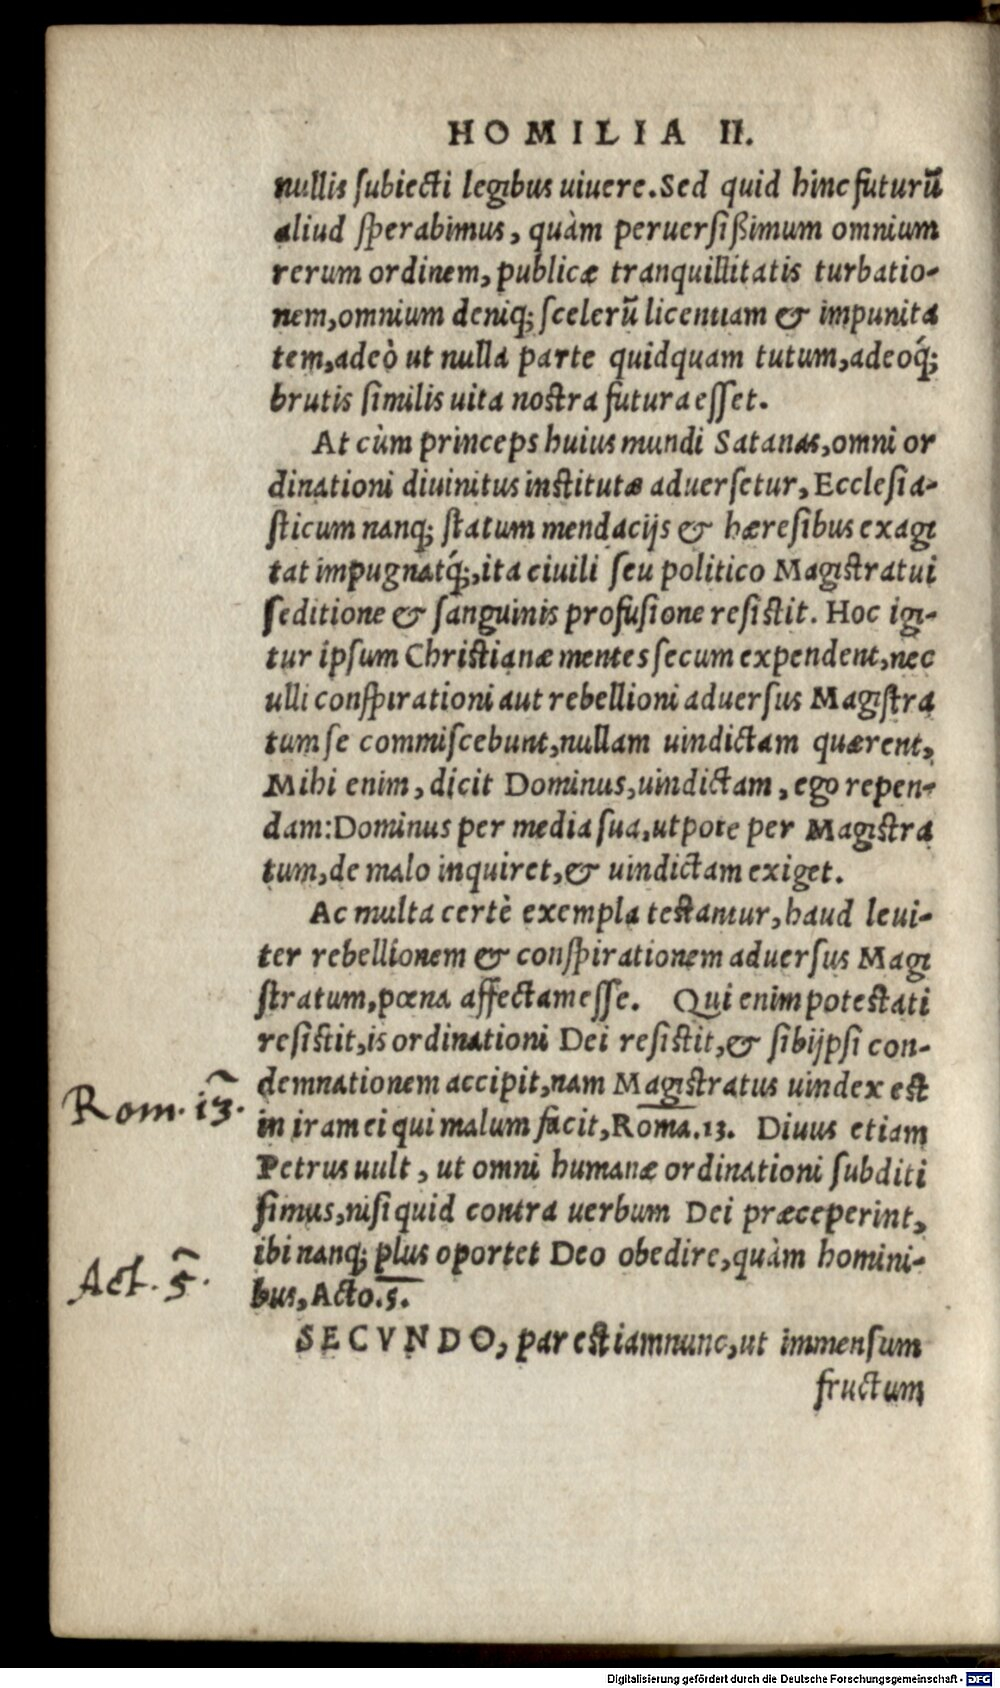 HOMILIA II.
nullis ſubiecti legibus uiuere. Sed quid hinc futurũ
aliud ſperabimus, quàm peruerſißimum omnium
rerum ordinem, publicæ tranquillitatis turbatio-
nem, omnium deniq; ſcelerũ licentiam & impunita
tem, adeò ut nulla parte quidquam tutum, adeoq́;
brutis ſimilis uita noſtra futura eſſet.
At cùm princeps huius mundi Satanas, omni or
dinationi diuinitus inſtitutæ aduerſetur, Eccleſia-
ſticum nanq; ſtatum mendacijs & hæreſibus exagi
tat impugnatq́;, ita ciuili ſeu politico Magiſtratui
ſeditione & ſanguinis profuſione reſiſtit. Hoc igi-
tur ipſum Chriſtianæ mentes ſecum expendent, nec
ulli conſpirationi aut rebellioni aduerſus Magiſtra
tum ſe commiſcebunt, nullam uindictam quærent,
Mihi enim, dicit Dominus, uindictam, ego repen-
dam: Dominus per media ſua, utpote per Magiſtra
tum, de malo inquiret, & uindictam exiget.
Ac multa certè exempla teſtantur, haud leui-
ter rebellionem & conſpirationem aduerſus Magi
ſtratum, pœna affectam eſſe. Qui enim poteſtati
reſiſtit, is ordinationi Dei reſiſtit, & ſibijpſi con-
demnationem accipit, nam Magiſtratus uindex eſt
Rom. 13. in iram ei qui malum facit, Roma. 13. Diuus etiam
Petrus uult, ut omni humanæ ordinationi ſubditi
ſimus, niſi quid contra uerbum Dei præceperint,
ibi nanq; plus oportet Deo obedire, quàm homini-
Act. 5. bus, Acto. 5.
SECVNDO, par eſt iamnunc, ut immenſum
fructum
Digitalisierung gefördert durch die Deutsche Forschungsgemeinschaft - DFG